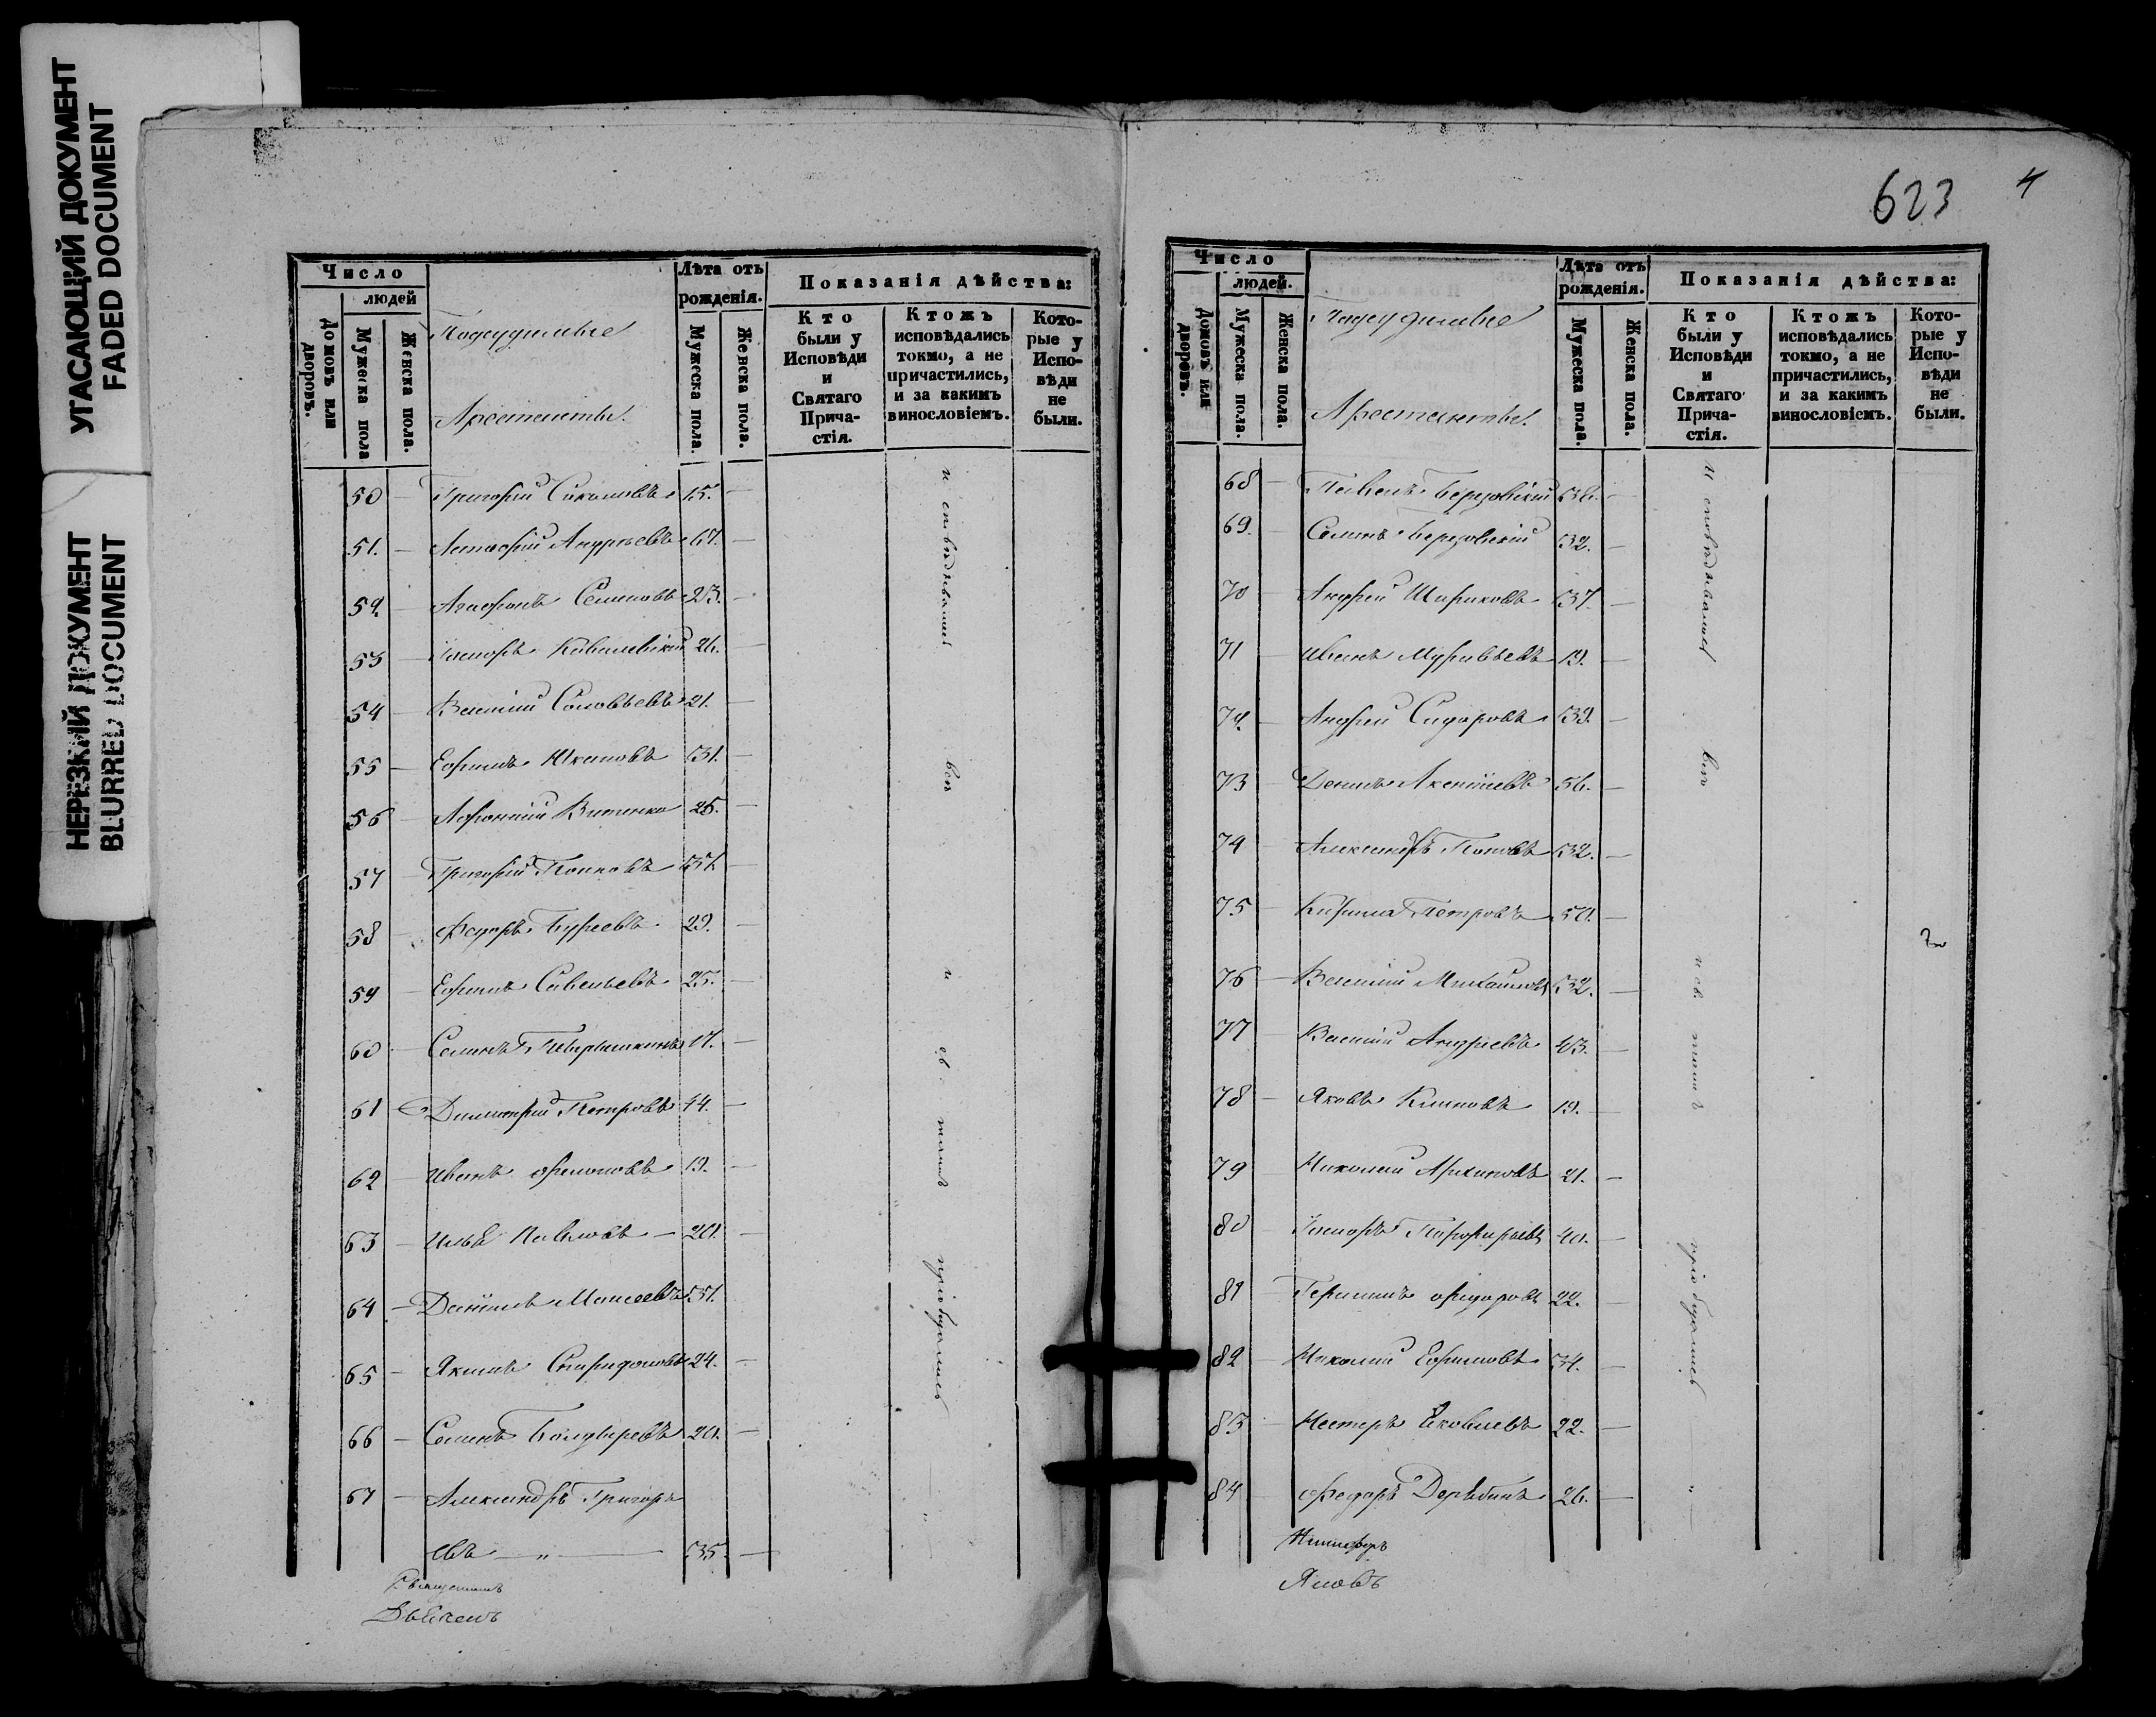 УГАСАЮЩИЙ ДОКУМЕНТ
FADED DOCUMENT
НЕРЕЗКИЙ ДОКУМЕНТ
BLURRED DOCUMENT
Число
людей
Домовъ или дворовъ.
Мужеска пола
Женска пола.
Подсудимые
Арестанты.
Лѣта отъ рожденія.
Мужеска пола.
Женска пола.
Показанія дѣйства:
Кто были у Исповѣди и Святаго Причастія.
Ктожъ исповѣдались токмо, а не причастились, и за какимъ винословіемъ.
Которые у Исповѣди не были.
50 — Григорій Соколовъ 15. —
51. — Андреевъ 67. —
52. — Агафонъ Семеновъ 23. —
53 — 26. —
54 — Василій Соловьевъ 21. —
55 — Ефимъ 31. —
56 — Афонасій 25. —
57 — Григорій Поповъ —
58 — Федоръ 29. —
59 — Ефимъ Савельевъ 25. —
60 — Семенъ 17. —
61 — Димитрій Петровъ 44. —
62 — Иванъ 19. —
63 — Илья Павловъ — 20. —
64 — Данилъ Моисеевъ
65 — Якимъ Спиридоновъ 24. —
66 — Семенъ Болдыревъ 20. —
67 — Александръ Григорь
евъ — „ — 35. —
исповѣдывались
всѣ
и
св.
таинъ
пріобщались
Священникъ
623
4
Число
людей.
Домовъ или дворовъ.
Мужеска пола.
Женска пола.
Подсудимые
Арестанты.
Лѣта отъ рожденія.
Мужеска пола.
Женска пола.
Показанія дѣйства:
Кто были у Исповѣди и Святаго Причастія.
Ктожъ исповѣдались токмо, а не причастились, и за какимъ винословіемъ.
Которые у Исповѣди не были.
68 — Павелъ Березовскій 36. —
69. — Семенъ Березовскій 32. —
70 — Андрей Шириковъ 37. —
71 — Иванъ Муравьевъ 19. —
72 — Андрей Сидоровъ 39. —
73 — 56. —
74 — Александръ Поповъ 32. —
75 — Кирила Петровъ 50. —
76 — Василій Михайловъ 32. —
77 — Василій Андреевъ 43. —
78 — Яковъ Климовъ 19. —
79 — Николай Архиповъ 21. —
80 — Порфирьевъ 40. —
81 — Герасимъ Федоровъ 22. —
82 — Николай Ефимовъ 34. —
83 — Нестеръ Яковлевъ 22. —
84 — Федоръ Дерябинъ 26. —
исповѣдывались
всѣ
и св. таинъ
пріобщались
Яковъ